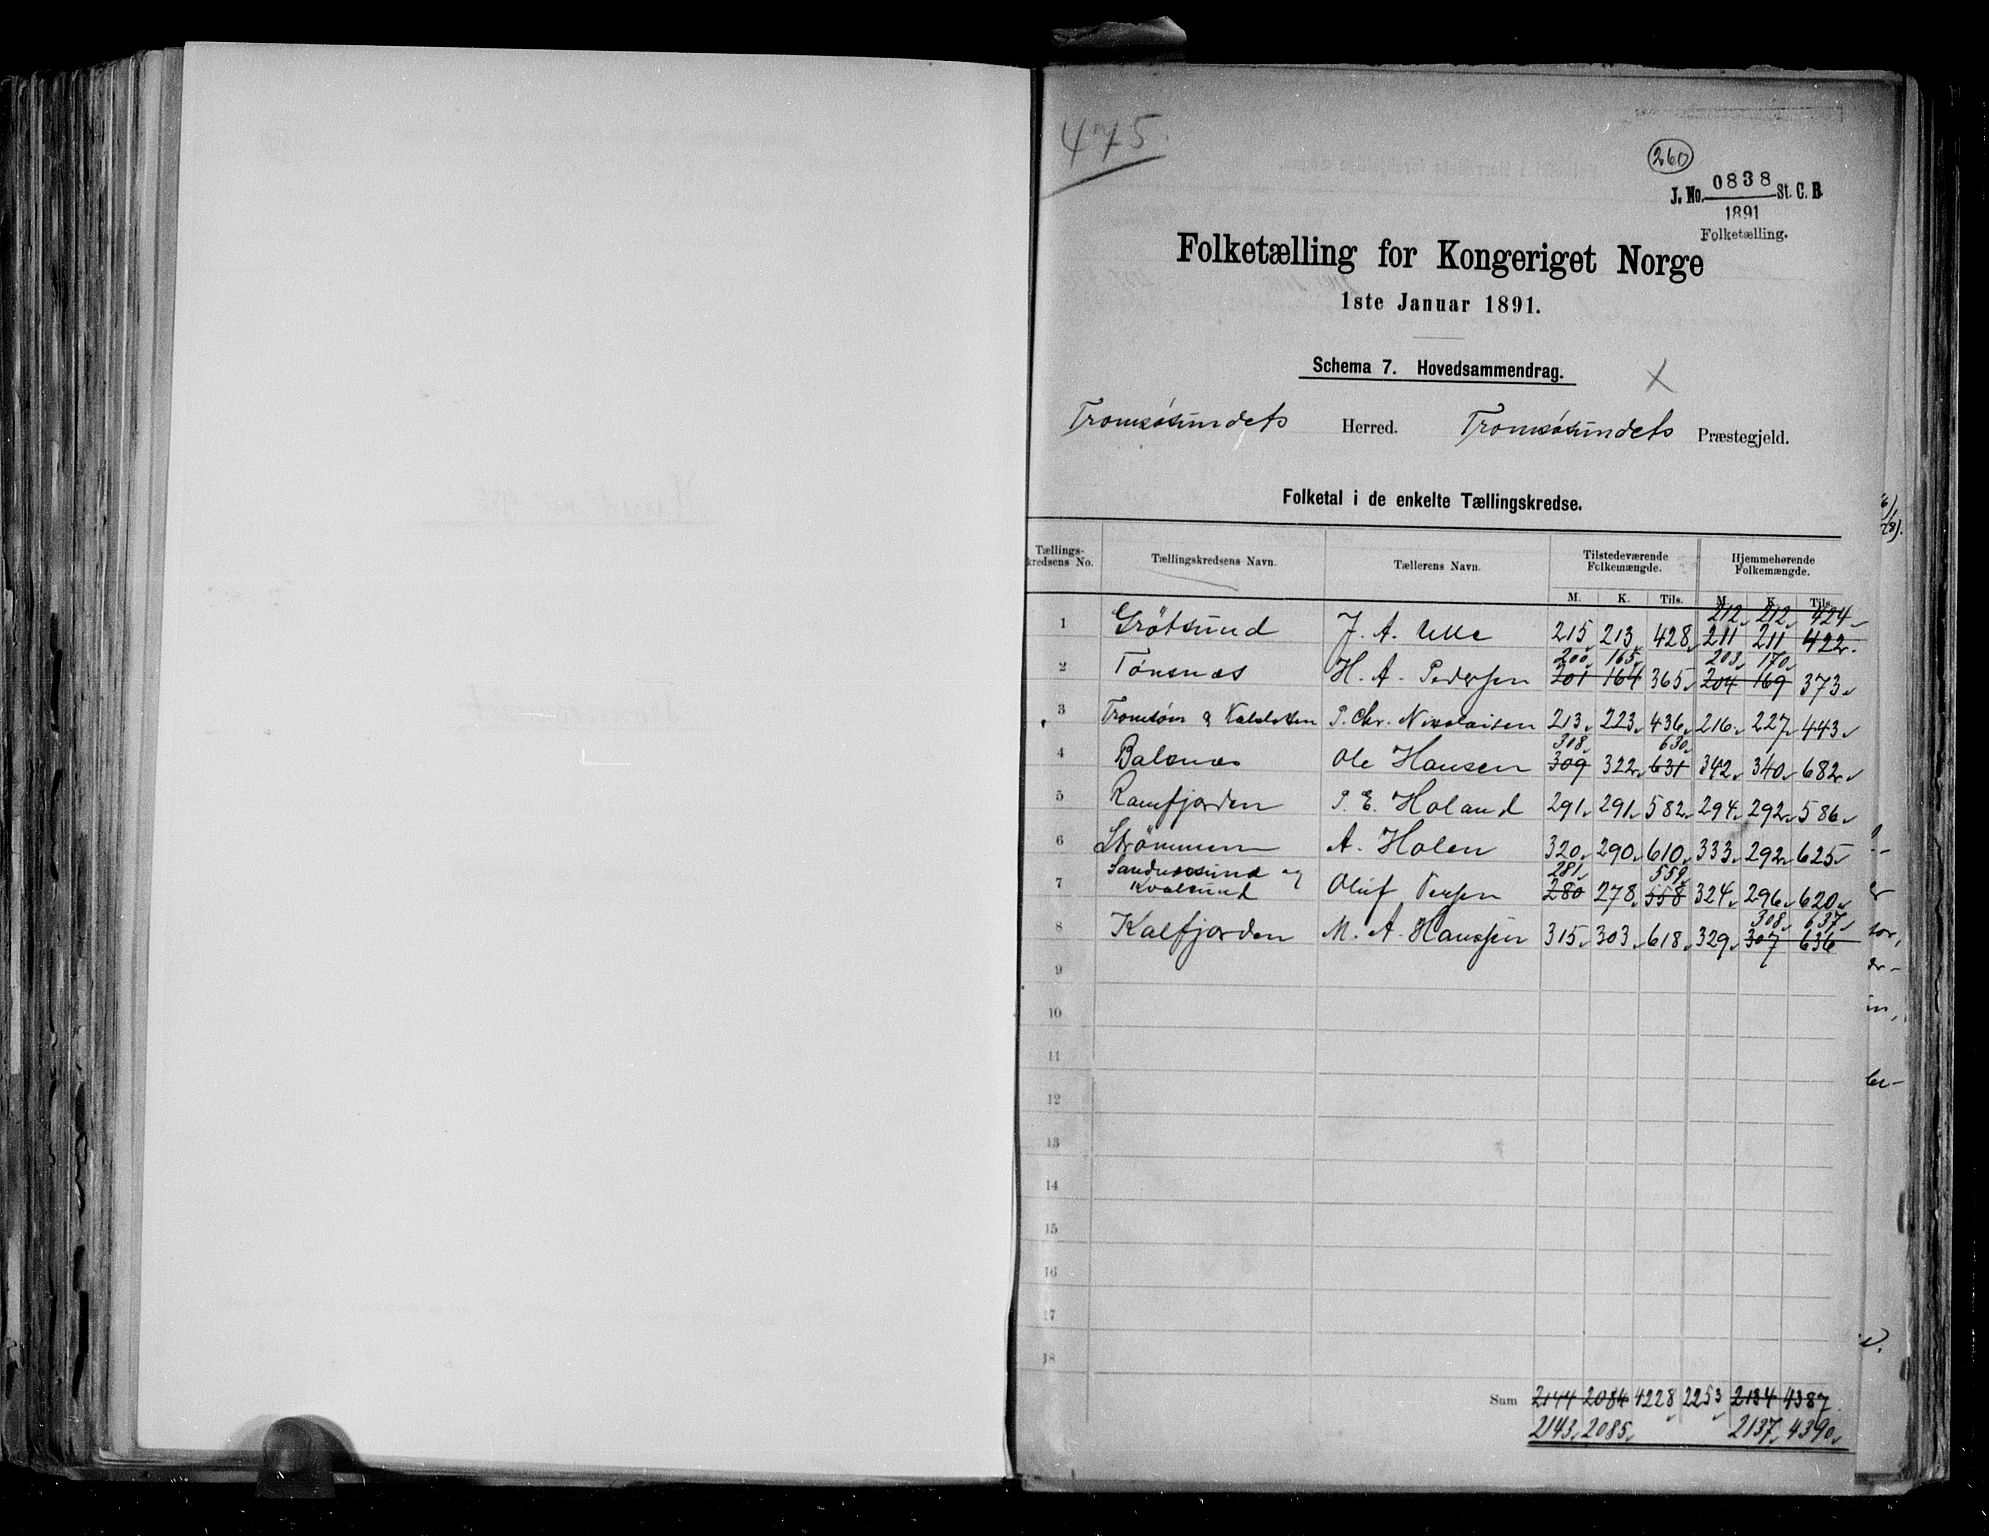 475.
260
J. No. 0838 St. C. B.
1891
Folketælling.
Folketælling for Kongeriget Norge
1ste Januar 1891.
Schema 7. Hovedsammendrag.
X
Tromsøsundets Herred. Tromsøsundets Præstegjeld.
Folketal i de enkelte Tællingskredse.
Tællings-kredsens No. Tællingskredsens Navn. Tællerens Navn. Tilstedeværende Folkemængde. Hjemmehørende Folkemængde.
M. K. Tils. M. K. Tils.
212 212 424
1 Grötsund J. A. Ulle 215 213 428 211 211 422
200 165 203 170
2 Tønsnæs H. A. Pedersen 201 164 365 204 169 373
3 Tromsøen & Kaldsletten P. Chr. Nikolaisen 213 223 436 216 227 443
308 630
4 Balsnæs Ole Hansen 309 322 631 342 340 682
5 Ramfjorden P. E. Holand 291 291 582 294 292 586
6 Strømmen A. Holen 320 290 610 333 292 625
281 559
7 Sandnæssund og Kvalsund Oluf Persen 280 278 558 324 296 620
308 637
8 Kalfjorden M. A. Hanssen 315 303 618 329 307 636
9
10
11
12
13
14
15
16
17
18
Sum 2144 2084 4228 2253 2134 4387
2143 2085 2137 4390